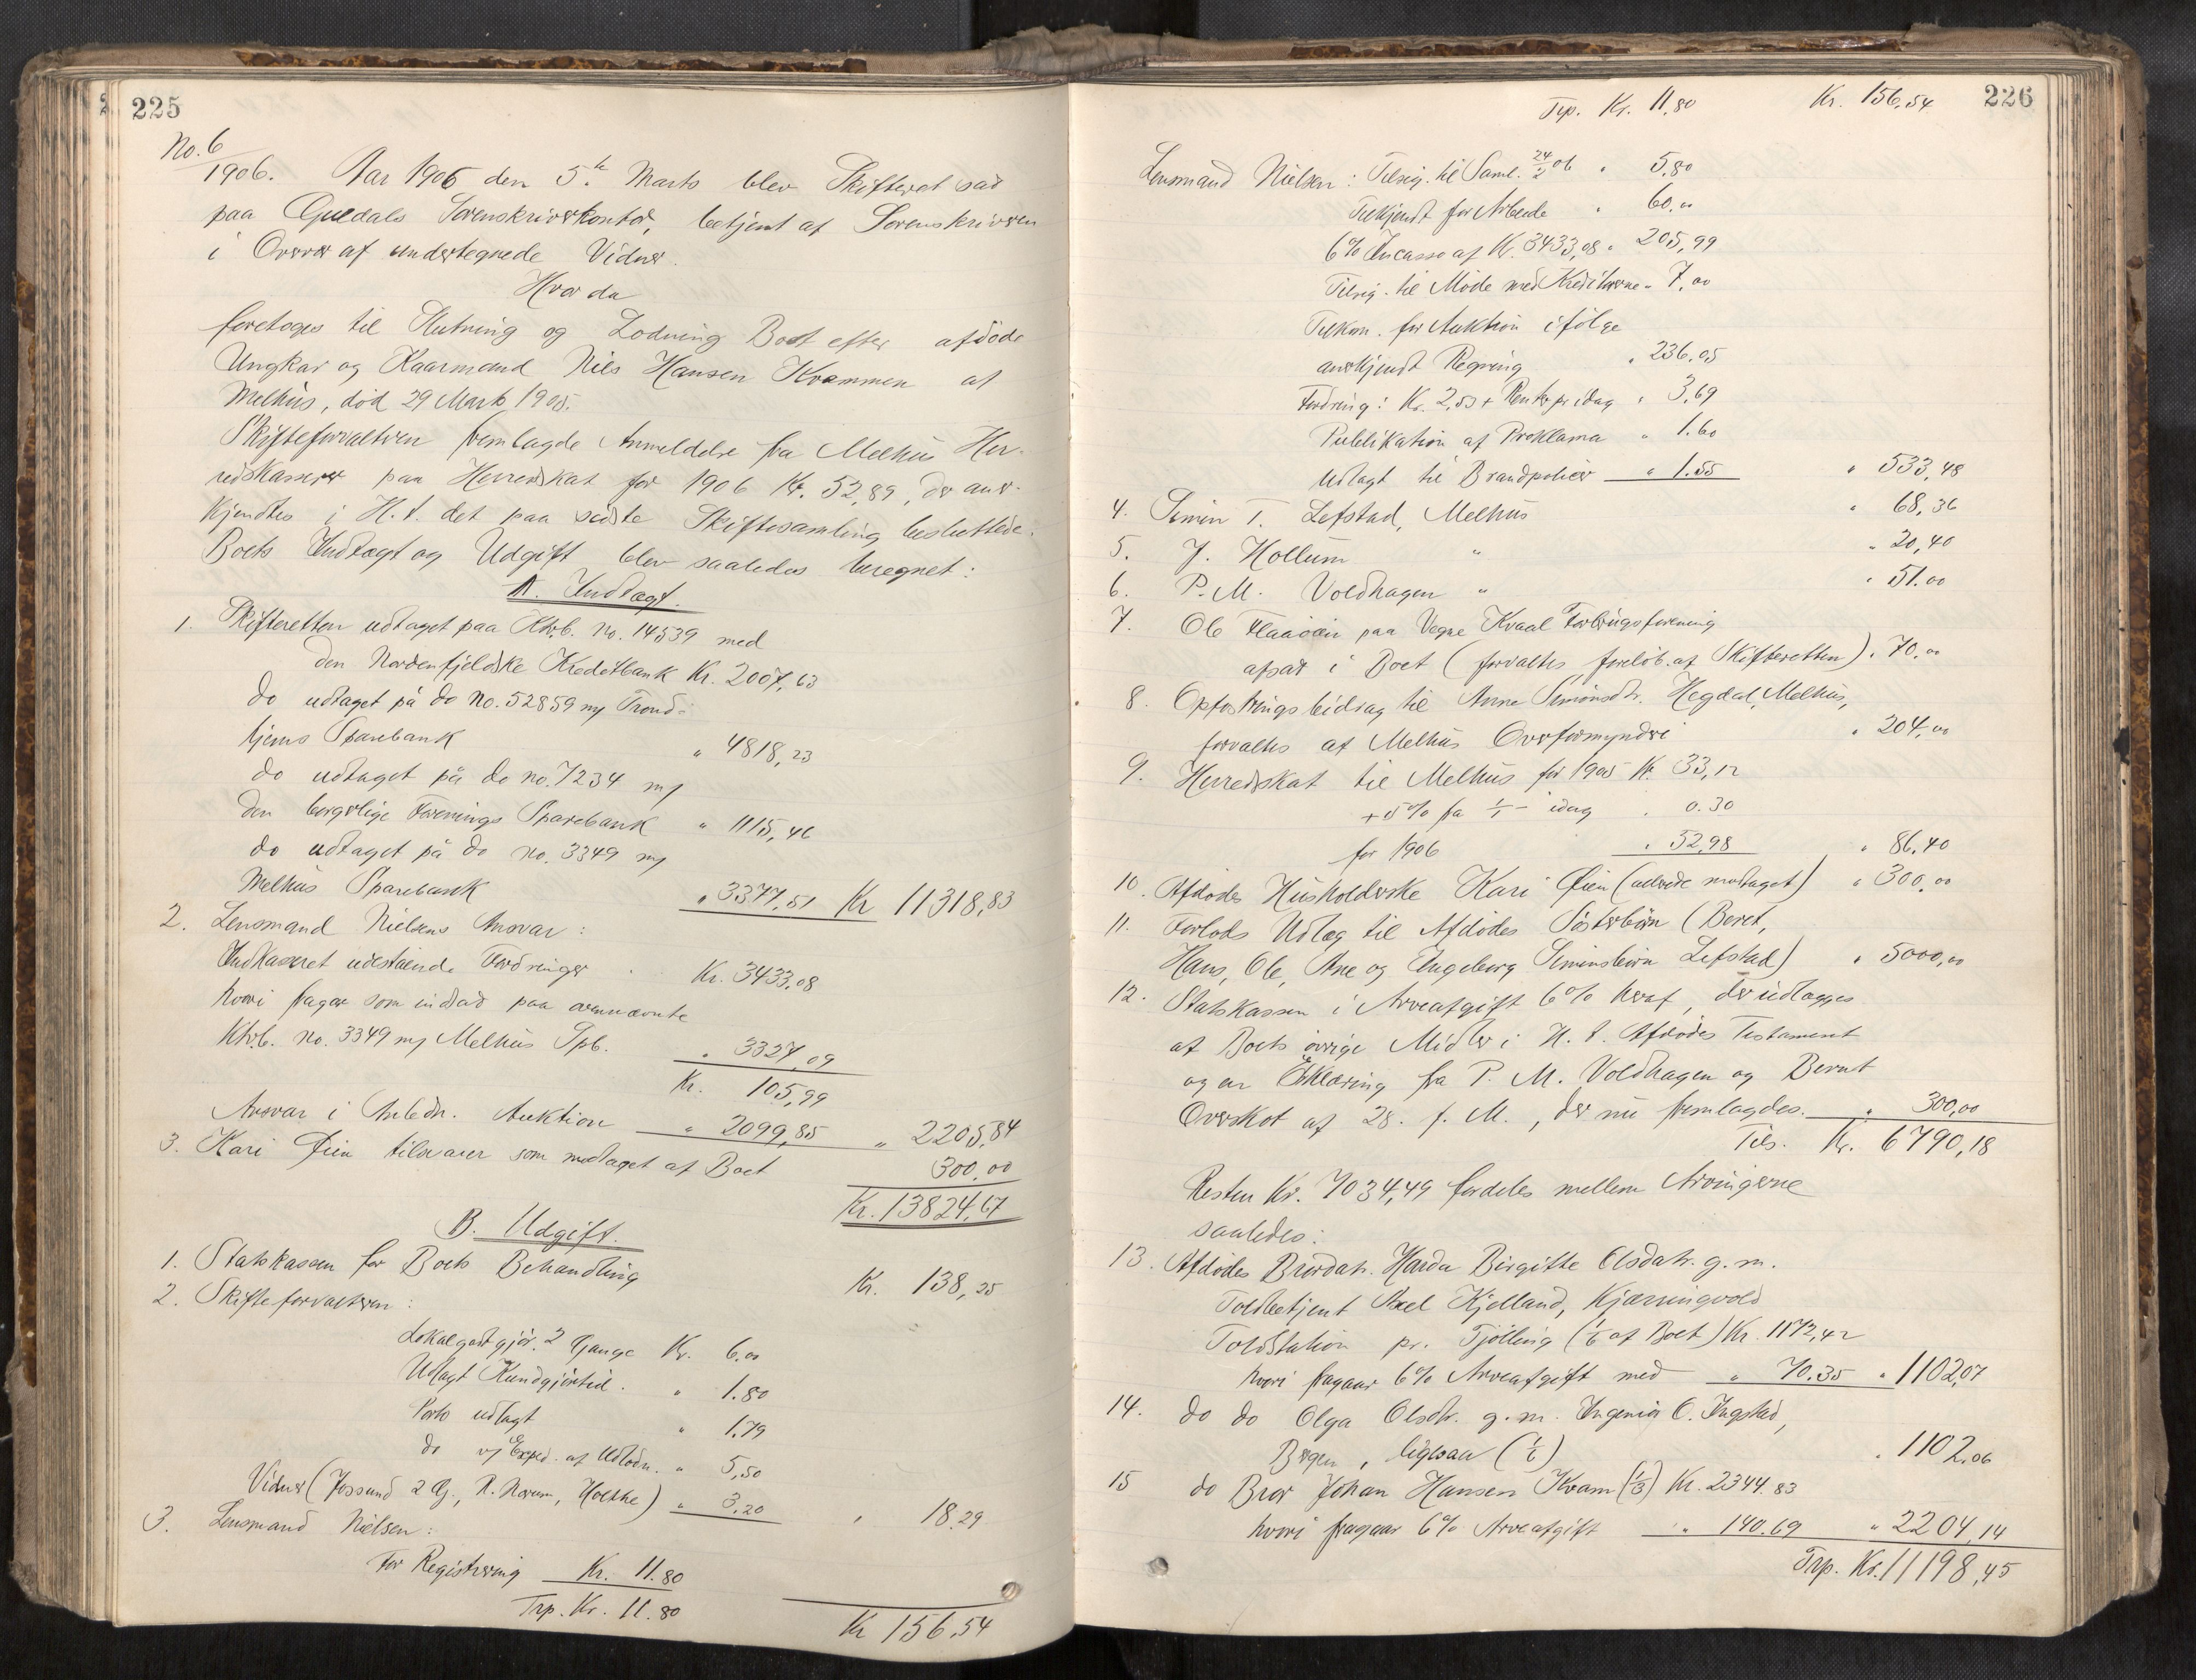 225
No. 6
1906. Aar 1906 den 5te Marts blev Skifteret sad
paa Guldals Sorenskriverkontor, betjent af Sorenskriveren
i Overvær af undertegnede Vidner.
Hvor da
foretoges til Slutning og Lodning Boet efter afdöde
Ungkar og Kaarmand Nils Hansen Kvammen af
Melhus, död 29 Marts 1905.
Skifteforvalteren fremlagde Anmeldelse fra Melhus Her-
redskasserer paa Herredskat for 1906 Kr. 52,89, der aner-
kjendtes i H.t. det paa sidste Skiftesamling besluttede.
Boets Indtægt og Udgift blev saaledes beregnet:
A. Indtægt.
1. Skifteretten udtaget paa Ktrb. No. 14539 med
den Nordenfjeldske Kreditbank Kr. 2007,63
do udtaget på do No. 52859 m/ Trond-
hjems Sparebank " 4818,23
do udtaget på do no. 7234 m/
den borgerlige Forenings Sparebank " 1115,46
do udtaget på do no. 3349 m/
Melhus Sparebank " 3377,51 Kr 11318,83
2. Lensmand Nielsens Ansvar:
Indkasseret udestående Fordringer . Kr. 3433,08
hvori fragår som indsad paa ovennævnte
Ktrb. no. 3349 m/ Melhus Spb. " 3327,09
Kr. 105,99
Ansvar i Anledn. Auktion " 2099,85 " 2205,84
3. Kari Øien tilsvarer som modtaget af Boet 300,00
Kr. 13824,67
B. Udgift.
1. Statskassen for Boets Behandling Kr. 138,25
2. Skifteforvalteren:
Lokalgodtgjör. 2 Gange Kr. 6,00
Udlagt Kundgjörelse . " 1.80
Porto udlagt " 1.79
do v/ Exped. af Udlodn. " 5,50
Vidner (Jossund 2 G., R. Norum, Holthe) " 3.20 " 18.29
3. Lensmand Nielsen:
For Registrering Kr. 11.80
Trp. Kr. 11.80 Kr 156.54
226
Trp. Kr. 11.80 Kr. 156.54
Lensmand Nielsen: Tilsig. til Saml. 24/2 06 " 5,80
Tilkjendt for Arbeide " 60,00
6% Incasso af Kr. 3433,08 " 205,99
Tilsig. til Möde med Kreditorerne " 7,00
Tilkom. for Auktion ifölge
anerkjendt Regning " 236.05
Fordring: Kr. 2,53 + Renter pr idag " 3,69
Publikation af Proklama " 1.60
Udlagt til Brandpolicer " 1.55 " 533,48
4. Simon T. Lefstad, Melhus " 68,36
5. J. Hollum " " 20,40
6. P. M. Voldhagen " " 51.00
7. Ole Flaaöien paa Vegne Kvaal Forbrugsforening
afsat i Boet (forvaltes forelöb. af Skifteretten) " 70,00
8. Opfostringsbidrag til Anne Simonsdtr. Hegdal, Melhus,
forvaltes af Melhus Overformynderi " 204,00
9. Herredskat til Melhus for 1905 Kr. 33,12
+ 5% fra 1/1 – idag " 0.30
for 1906 " 52,98 " 86.40
10. Afdödes Husholderske Kari Øien (allerede modtaget) " 300,00
11. Forlods Udlæg til Afdödes Sösterbörn (Beret,
Hans, Ole, Ane og Ingeborg Simonsbörn Lefstad) " 5000,00
12. Statskassen i Arveafgift 6% heraf, der udlægges
af Boets övrige Midler i H. t. Afdödes Testament
og en Erklæring fra P. M. Voldhagen og Bernt
Overskot af 28. f. M., der nu fremlagdes. " 300,00
Tils. Kr. 6790,18
Resten Kr. 7034,49 fordeles mellem Arvingerne
saaledes:
13. Afdödes Brordatr. Harda Birgitte Olsdatr. g. m.
Toldbetjent Axel Kjelland, Kjærringvold
Toldstation pr. Tjölling (1/6 af Boet) Kr. 1172,42
hvori fragaar 6% Arveafgift med " 70.35 " 1102,07
14. do do Olga Olsdtr. g. m. Ingeniör C. Ingstad,
Bergen, ligesaa (1/6) " 1102.06
15 do Bror Johan Hansen Kvam (1/3) Kr. 2344.83
hvori fragaar 6% Arveafgift " 140.69 " 2204,14
Trp. Kr. 11198,45